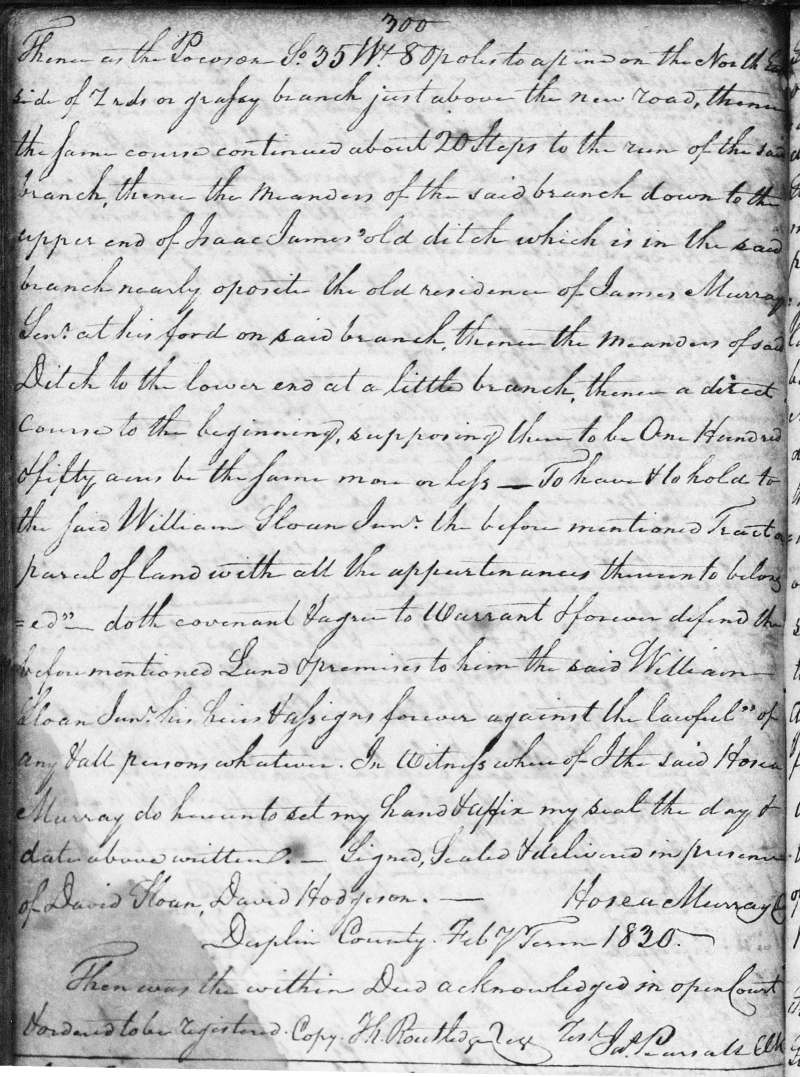 300
Thence as the Pocoson So. 35 Wt. 80 poles to a pine on the North East
side of Z rds or grassy branch just above the new road, thence
the same course continued about 20 Steps to the run of the said
branch, thence the meanders of the said branch down to the
upper end of Isaac James' old ditch which is in the said
branch nearly oposite the old residence of James Murray
Senr. at his ford on said branch, thence the meanders of said
Ditch to the lower end at a little branch, thence a direct
course to the beginning, supposing there to be One Hundred
& fifty acres be the same more or less — To have & to hold to
the said William Sloan Junr. the before mentioned Tract or
parcel of land with all the appurtenances thereunto belong
=ed" — doth covenant & agree to Warrant & forever defend the
before mentioned Land & premises to him the said William
Sloan Junr. his heirs & assigns forever against the lawful " of
any & all persons whatever. In Witness where of I the said Hosea
Murray do hereunto set my hand & affix my seal the day &
date above written. — Signed, Sealed & delivered in presence
of David Sloan, David Hodgeson. — Hosea Murray
Duplin County. Feby Term 1830. —
Then was the within Deed acknowledged in open Court
& ordered to be registered. Copy. Th. Routledge Regr Test Jas. Pearsall Clk